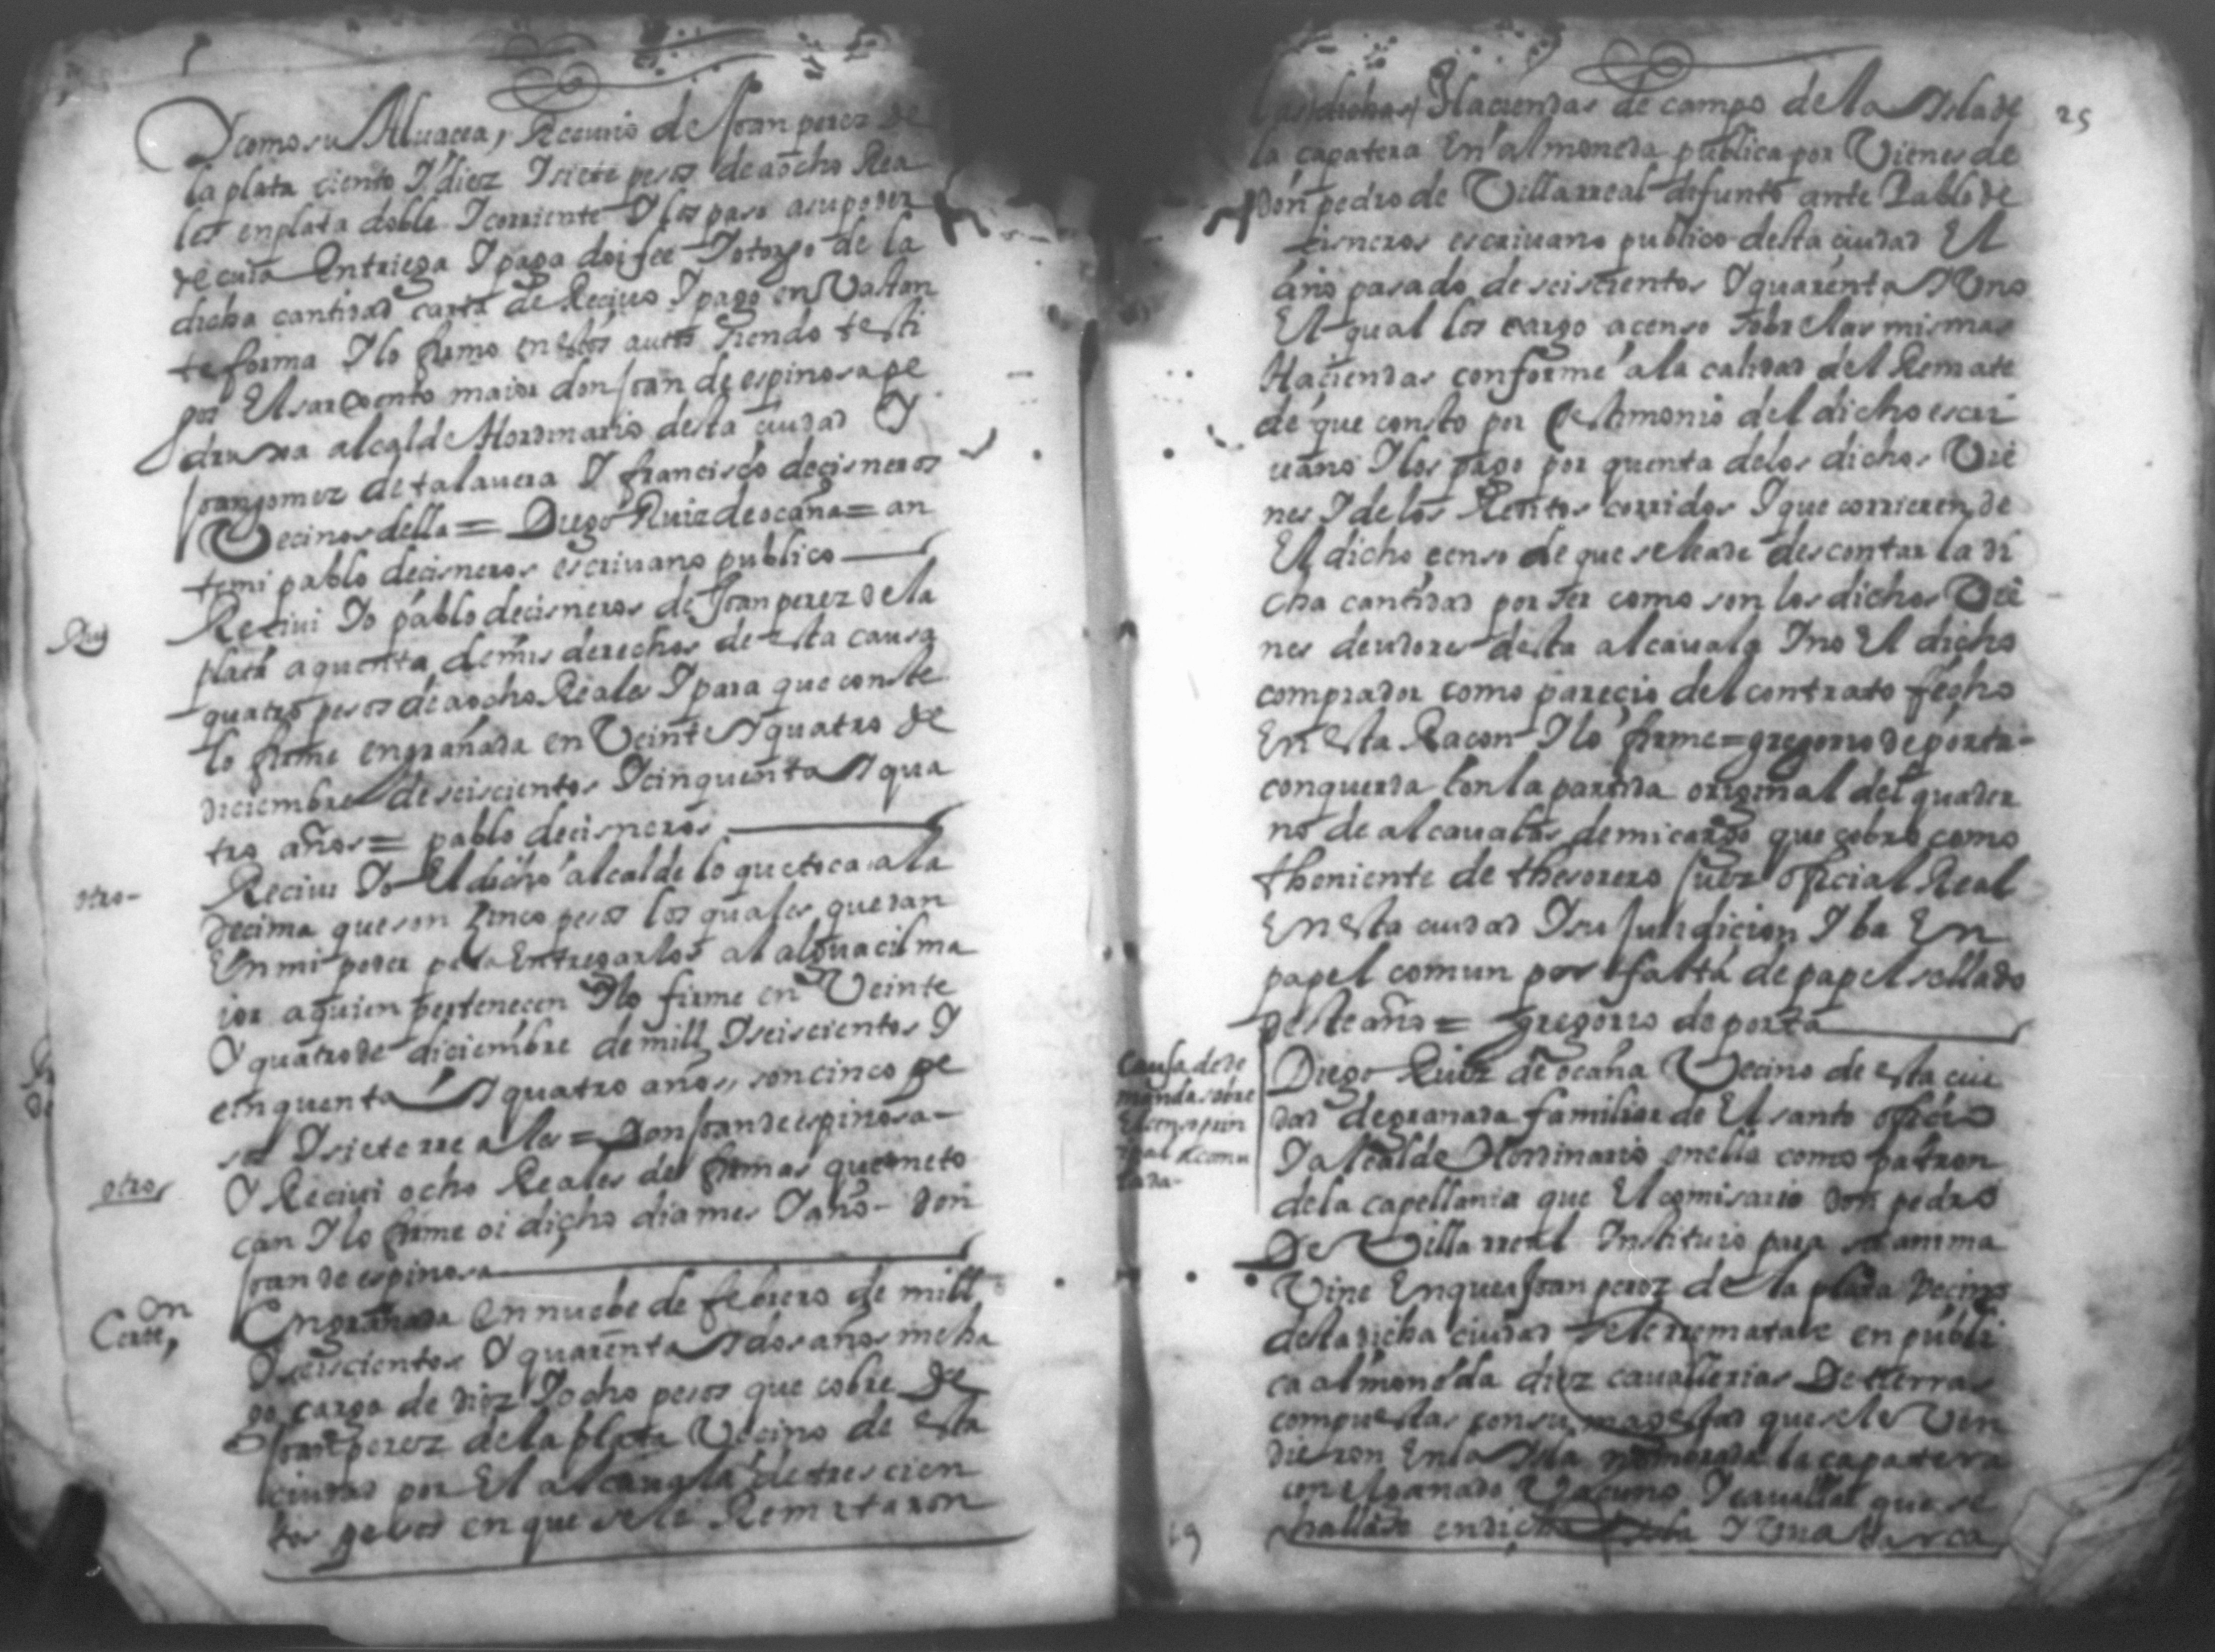 Y como su Aluacea, Receuio de Joan perez de
la plata ciento Y diez Y siete pesos de a ocho Rea
les en plata doble Y corriente Y los paso a su poder
de cuia Entriega Y paga doi fee Y otorgo de la
dicha cantidad carta de Reciuo Y pago en Vastan
te forma Y lo firmo en estos autos siendo testi
gos El sarxento maior don Joan de espinosa pe
druxa alcalde Hordinario desta ciudad Y
Joan gomez de talauera Y francisco de cisneros
Vecinos della = Diego Ruiz de ocaña = an
te mi pablo de cisneros escriuano publico
Reciui Yo pablo de cisneros de Joan perez de la
plata a quenta de mis derechos de esta causa
quatro pesos de a ocho Reales Y para que conste
lo firme en granada en Veinte Y quatro de
diciembre de seiscientos Y cinquenta Y qua
tro años = pablo de cisneros
otro-
Reciui Yo El dicho alcalde lo que toca a la
decima que son cinco pesos los quales quedan
En mi poder para Entregarlos al alguacil ma
ior a quien pertenecen Y lo firme en Veinte
Y quatro de diciembre de mill Y seiscientos Y
cinquenta Y quatro años, son cinco pe
sos Y siete rreales = Don Joan de espinosa-
otro
Y Reciui ocho Reales de firmas que me to
can Y lo firme oi dicho dia mes Y año- don
Joan de espinosa
En granada En nuebe de febrero de mill
Y seiscientos Y quarenta Y dos años me ha
go cargo de diez Y ocho pesos que cobre de
Joan perez de la plata Vecino de esta
ciudad por El alcauala de trescien
tos pesos en que se le Remataron
25
las dichas Haciendas de campo de la Isla de
la capatera En almoneda publica por Vienes de
don pedro de Villarreal difunto ante Pablo de
cisneros escriuano publico desta ciudad El
año pasado de seiscientos Y quarenta Y Uno
El qual los cargo a censo sobre las mismas
Haciendas conforme a la calidad del Remate
de que consto por testimonio del dicho escri
uano Y los pago por quenta de los dichos Vie
nes Y de los Reditos corridos Y que corrieren de
El dicho censo de que se le a de descontar la di
cha cantidad por ser como son los dichos Vie
nes deudores desta alcauala Y no El dicho
comprador como parecio del contrato fecho
En esta Racon Y lo firme = gregorio de porta-
conquerda con la partida original del quader
no de alcaualas de mi cargo que cobro como
theniente de thesorero Juez oficial Real
En esta ciudad Y su Jurisdicion Y ba En
papel comun por falta de papel sellado
deste año = gregorio de porta
Causa de de
manda sobre
El censo prin
Diego Ruiz de ocaña Vecino de esta ciu
dad de granada familiar de El santo oficio
Y alcalde Hordinario en ella como patron
de la capellania que El comisario don pedro
De Villarreal Instituio para su anima
Vine En que a Joan perez de la plata Vecino
desta dicha ciudad se le rrematase en publi
ca almoneda diez cauallerias De tierras
compuestas con su magestad que se le Ven
dieron En la Isla nombrada la capatera
con el ganado Vacuno Y cauallar que se
hallase en dicha Isla Y Una barca